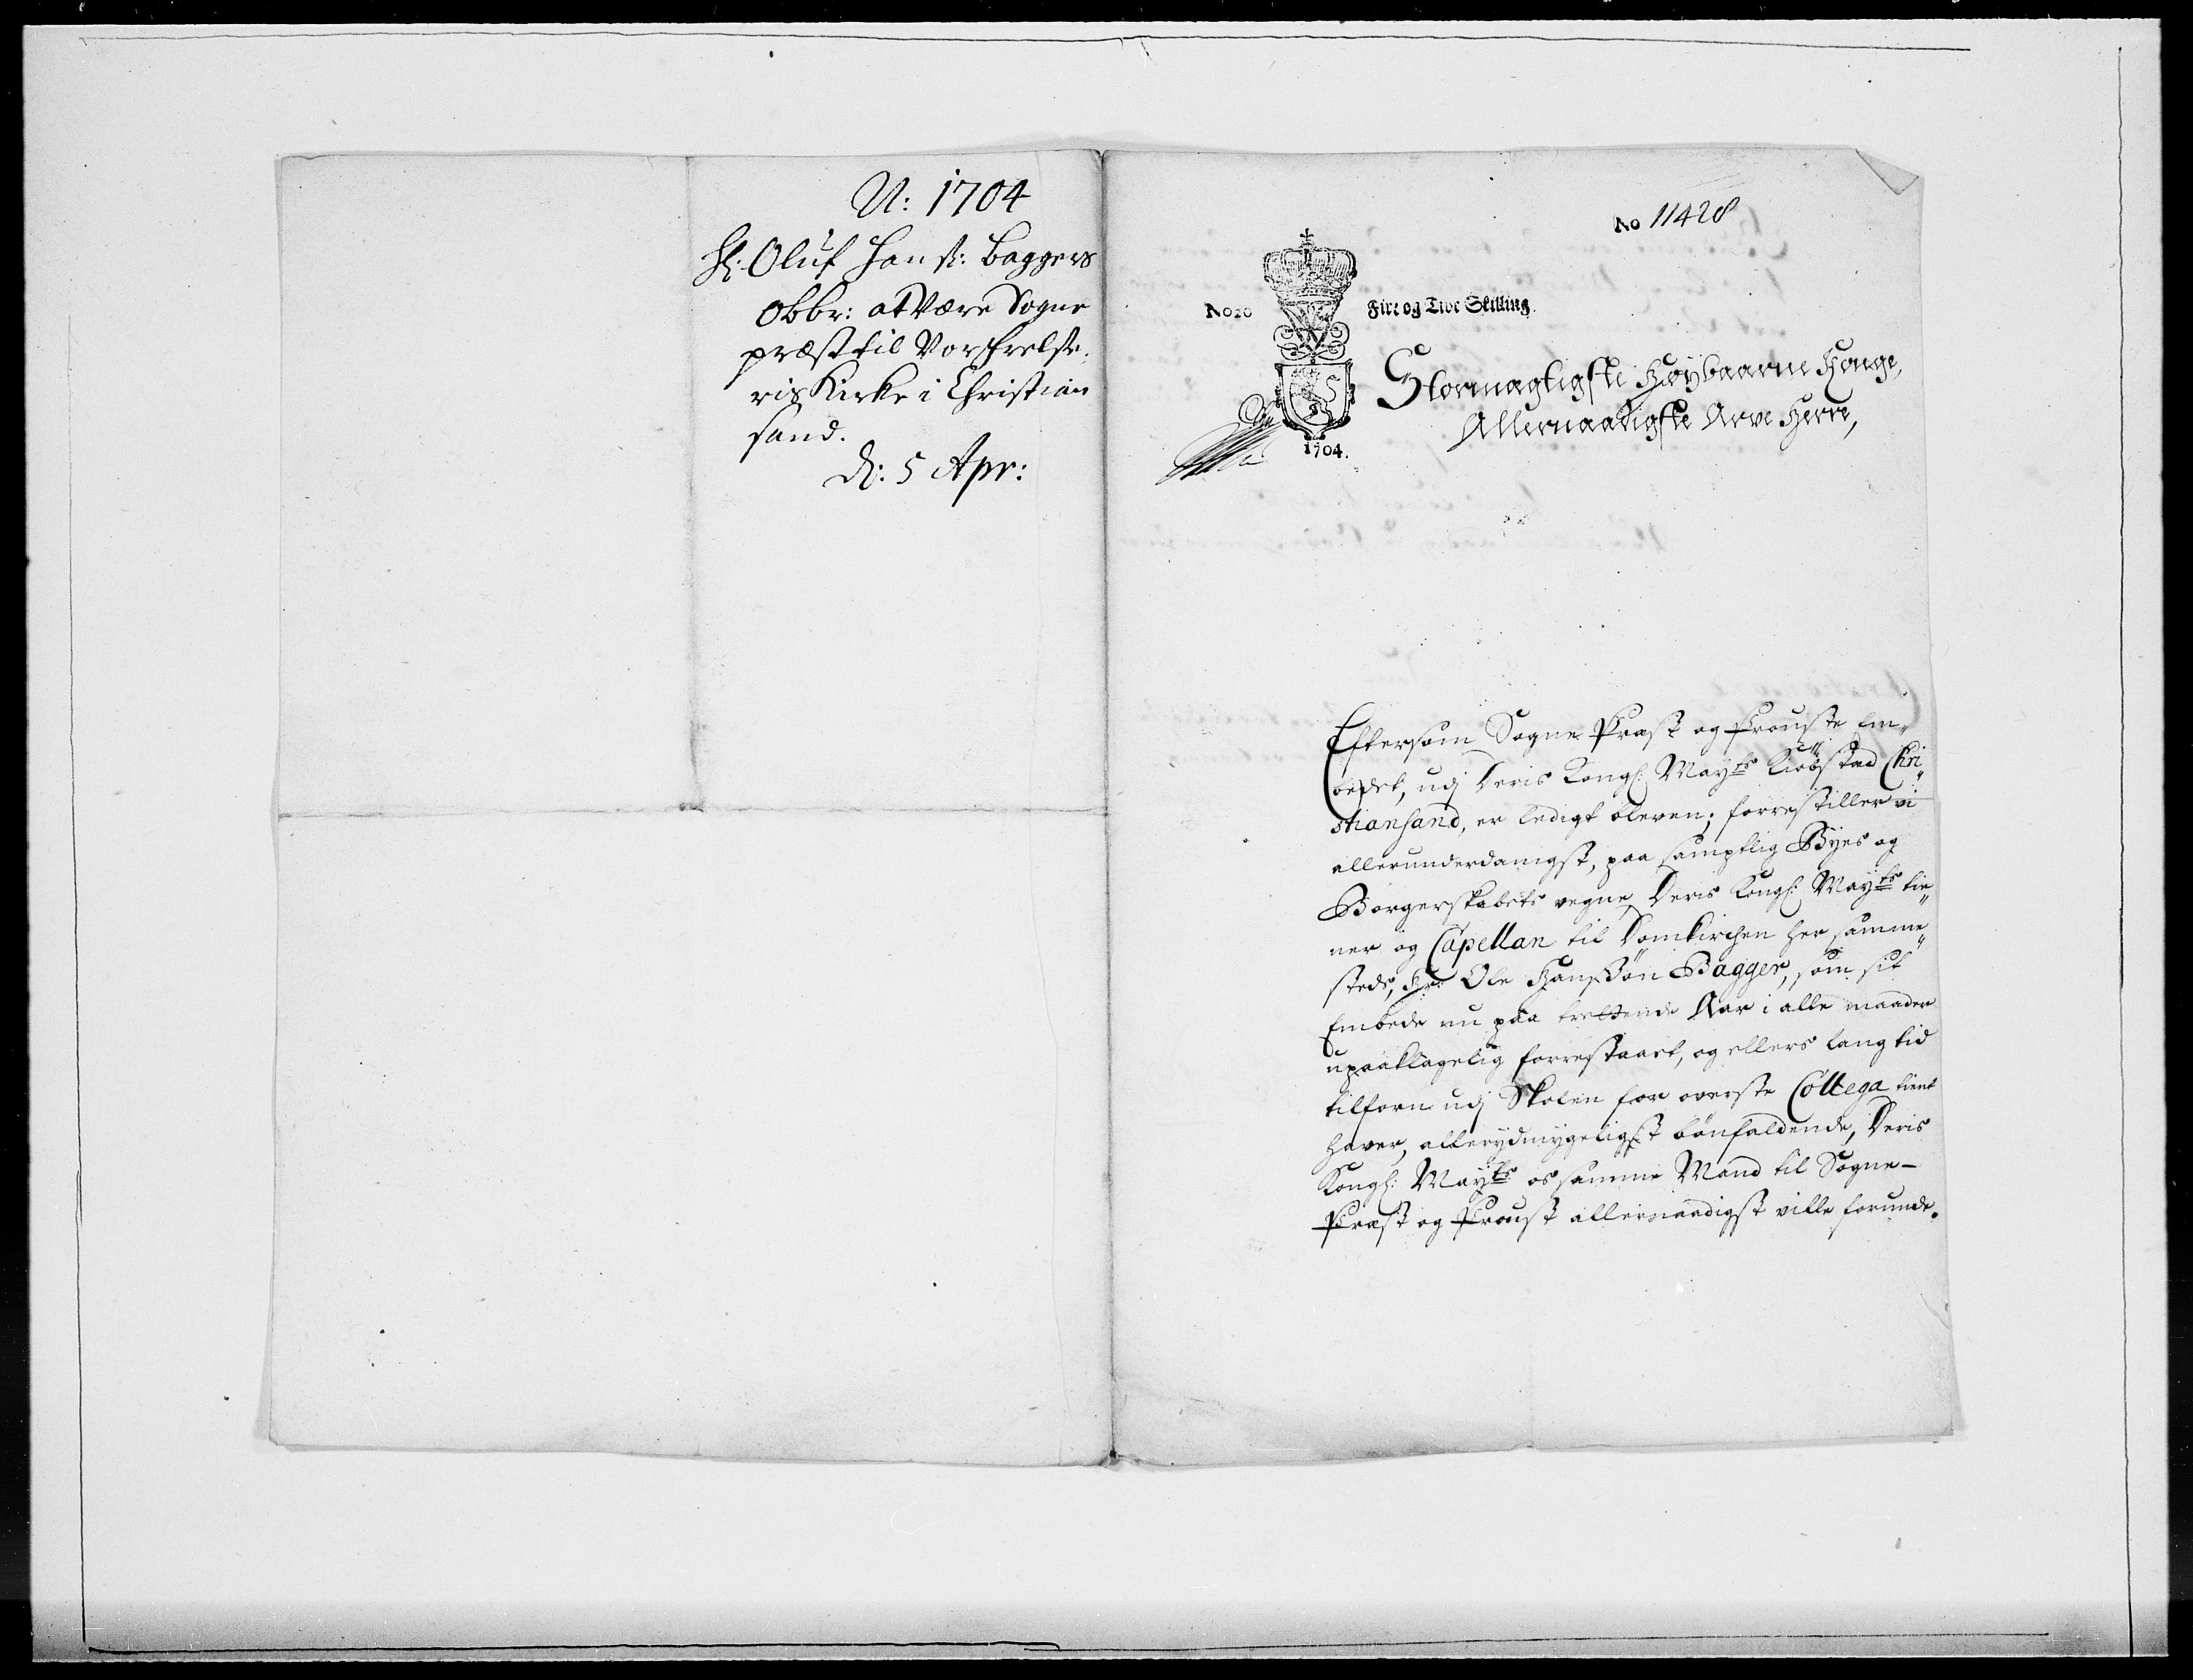 N: 1704
Hr: Oluf Hanß: Baggers
Obbr: at være Sogne
præst til Vor Frelse-
ris Kirke i Christian
sand.
d: 5 Apr:
No 11428
No 20
Fire og Tive Skilling
1704.
Stormægtigste Høybaarne Konge,
Allernaadigste Arve Herre,
Eftersom Sogne Præst og Prouste Em„
bedet, udj Deris Kongl: Mayts Kiøbstad Chri„
stiansand, er ledigt bleven; forrestiller vi
allerunderdanigst, paa samptlig Byes og
Borgerskabets vegne, Deris Kongl: Mayts tie„
ner og Capellan til Domkirchen her samme„
steds, Hr: Ole Hanssøn Bagger, som sit
Embede nu paa trettende Aar i alle maader
upaaklagelig forrestaaet, og ellers lang tid
tilforn udj Skolen for øverste Collega tient
haver, allerydmygeligst bønfaldende, Deris
Kongl: Mayts os samme Mand til Sogne-
Præst og Proust allernaadigst ville forunde.